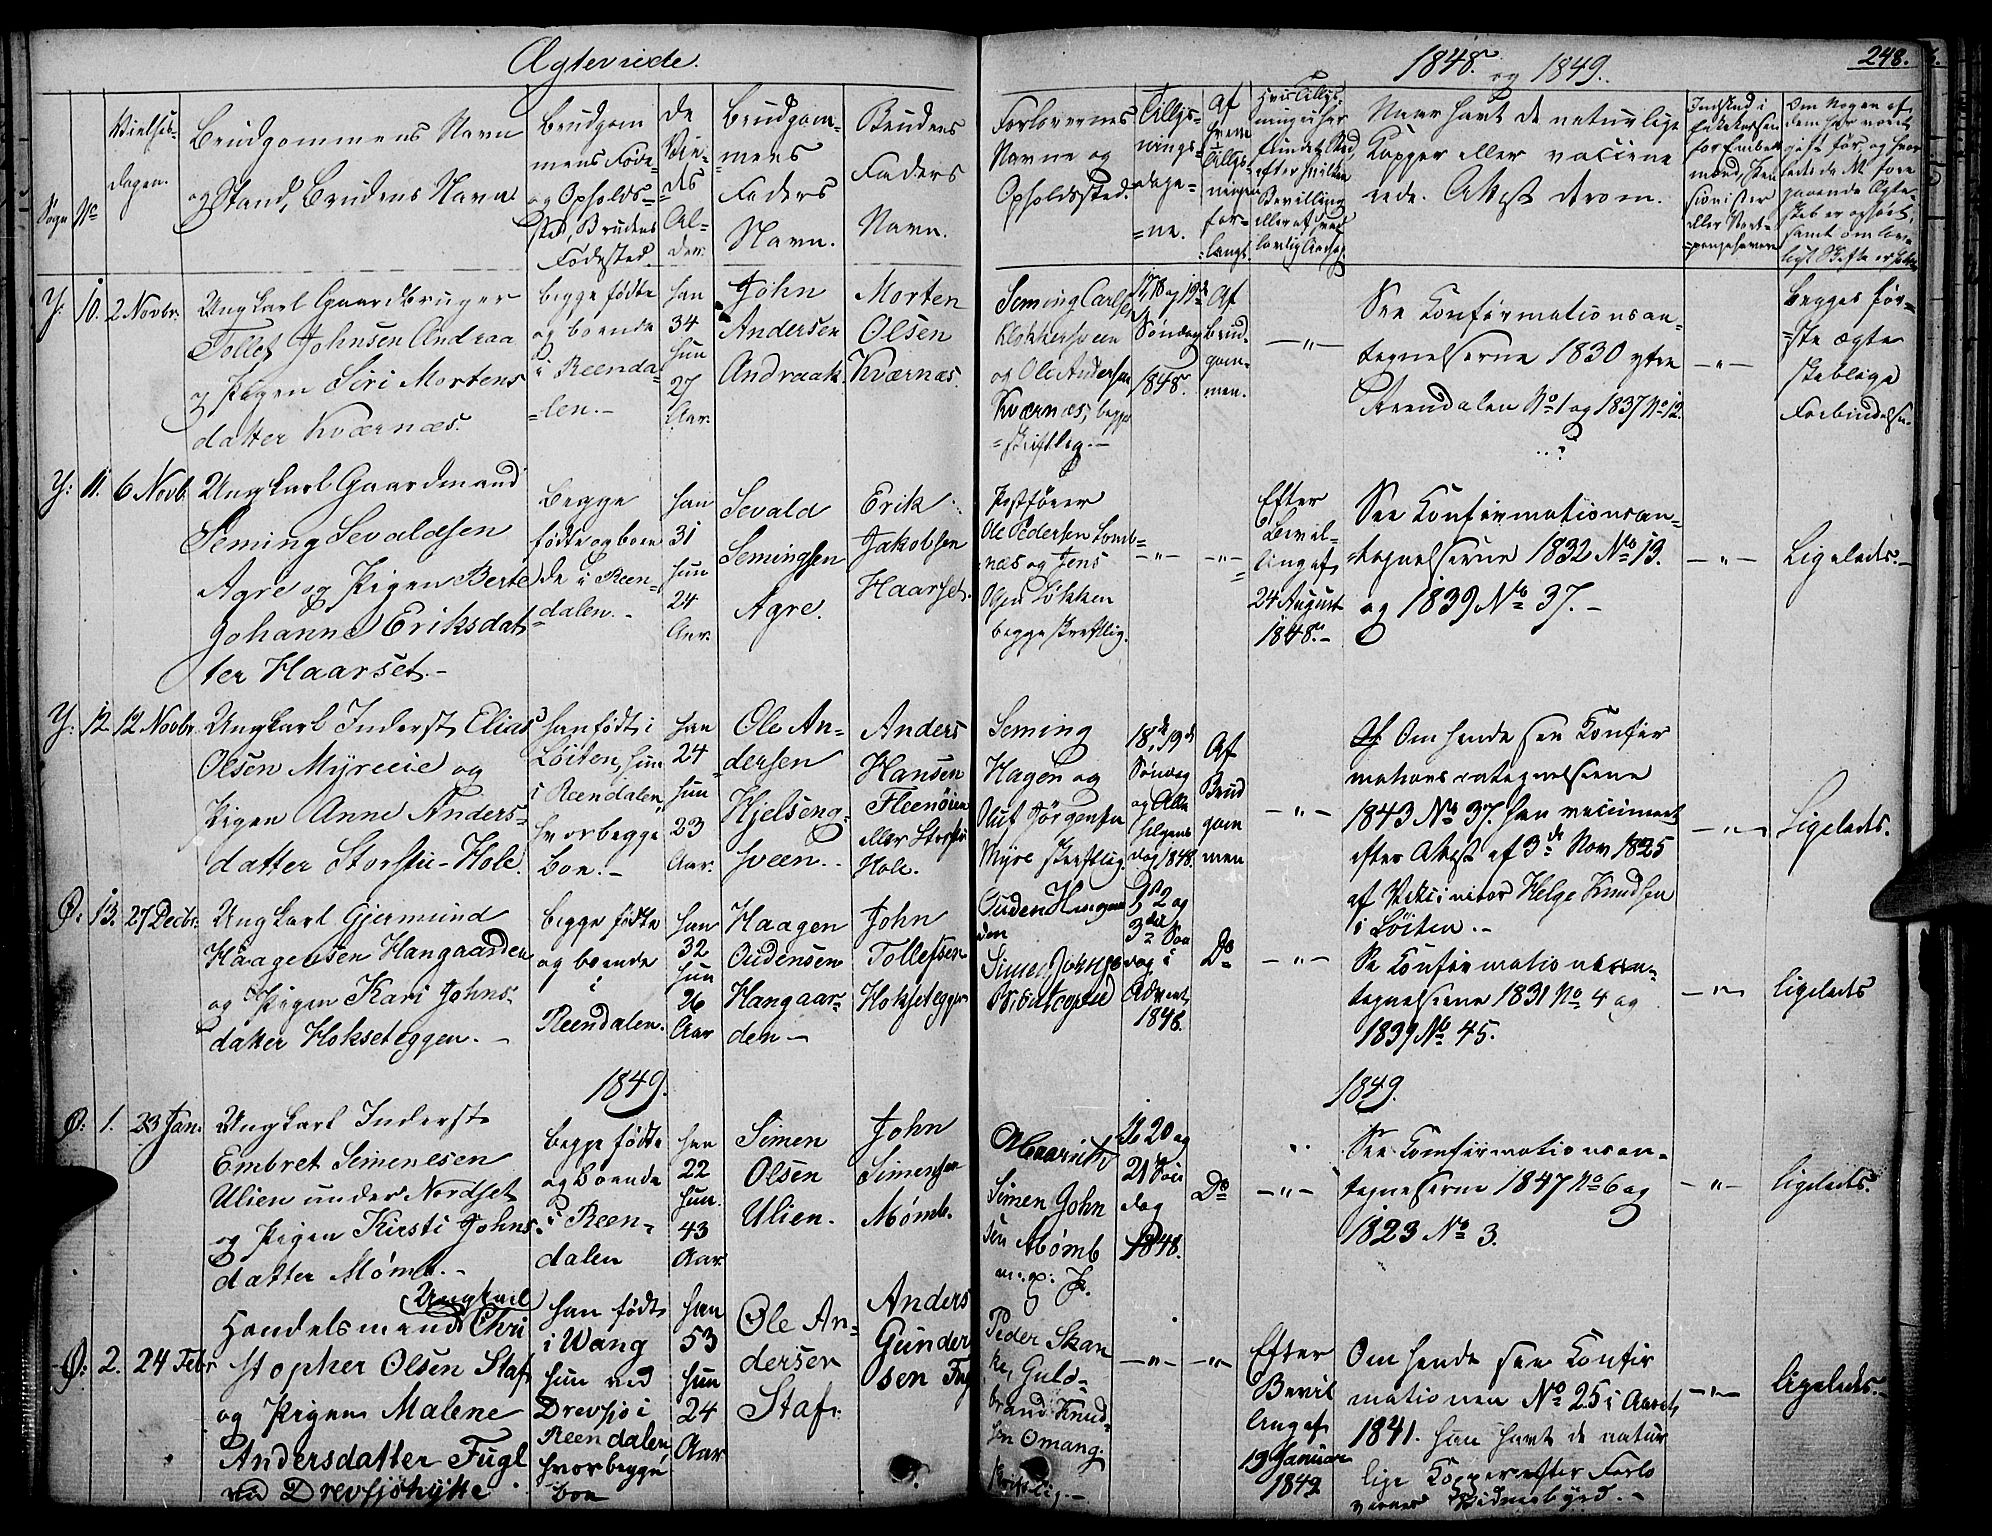 Ægteviede.
1848 og 1849.
248.
Sogn
No
Vielses-
dagen.
Brudgommens Navn
og Stand, Brudens Navn
Brudgom
mens Føde
og Opholds-
sted, Brudens
Fødested.
De
Vie-
des
Al-
der.
Brudgom-
mens
Faders
Navn.
Brudens
Faders
Navn.
Forlovernes
Navne og
Opholdssted.
Tillys-
nings-
dage-
ne.
Af
hvem
Tillys-
ningen
for-
langt.
Naar havt de naturlige
Kopper eller vaccine
rede. Attest derom.
Y: 10. 2 Novbr.
Ungkarl Gaardbruger
Tollef Johnsen Andraa
og Pigen Siri Mortens
datter Kværnæs
begge fødte
og boende
i Reenda-
len.-
han
34
hun
27
Aar.
John
Andersen
Andraak.
Morten
Olsen
Kværnæs.
Seming Carlsen
Klokkersveen
og Ole Andersen
Kværnæs, begge
skriftlig.-
17, 18 og 19de
Søndag
1848.
Af
brud-
gom-
men.
-"-
See Konfirmationsan-
tegnelserne 1830 ytre
Reendalen No 1 og 1837 No 12.
-"-
begges før-
ste ægte
skabelige
Forbindelse.
Y: 11. 6 Novb.
Ungkarl Gaardmand
Seming Sevaldsen
Agre og Pigen Berte
Johanne Eriksdat
ter Haarset.-
begge
fødte og boen
de i Reen-
dalen.-
han
31
hun
24
Aar.
Sevald
Semingsen
Agre.
Erik
Jakobsen
Haarset.
Postfører
Ole Pedersen Lomb-
næs og Jens
Olsen Løkken
begge skriftlig.
-"-
-"-
Efter
Bevil-
ling af
24 August
1848.-
See Konfirmationsan-
tegnelserne 1832 No 19.
og 1839 No 37.-
-"-
Ligeleds.-
Y: 12. 12 Novbr.
Ungkarl Inderst Elias
Olsen Myreie og
Pigen Anne Anders-
datter Storstu-Hole.
han født i
Løiten, hun
i Reendalen,
hvor begge
boe.-
han
24
hun
23
Aar.
Ole An-
dersen
Hjelseng-
sveen.
Anders
Hansen
Fleenøien
eller Storstu
Hole.
Seming
Hagen og
Oluf Jørgensen
Myre skriftlig.
18de, 19de
Søndag
og Alle
helgens
dag 1848.
Af
Brud
gom
men
-"-
Om hende see Konfir
mationsantegnelserne
1843 No 37. han vaccineret
efter Attest af 3de Nov 1825
af Vaccinator Helge Knudsen
i Løiten.-
-"-
Ligeleds.
Ø: 13. 27 Decbr.
Ungkarl Gjermund
Haagensen Hangaarden
og Pigen Kari Johns-
datter Hokseteggen.-
begge fødte
og boende
i
Reendalen.
han
32
hun
26
Aar
Haagen
Oudensen
Hangaar-
den-
John
Tollefsen
Hokseteggen
Ouden Hangaar
den
Simen Johnsen
2 og
3die Søn
dag i
Advent
1848.
Do
-"-
Se Konfirmationsan-
tegnelserne 1831 No 4 og
1839 No 45.
-"-
ligeleds
1849.
1849.
Ø: 1. 23 Jan.
Ungkarl Inderst
Embret Simensen
Ulien under Nordset
og Pigen Kirsti Johns-
datter Mømb.-
begge fødte
og boende
i Reen-
dalen
han
22
hun.
43
Aar.
Simen
Olsen
Ulien.
John
Simensen
Mømb.
Simen John
sen Mømb
m. p. P.
20 og
21 Søn
dag
1848.
Do
-"-
See Comfirmationsan-
tegnelserne 1847 No 6 og
1823 No 3.
-"-
ligeleds.
Ø: 2. 24 Febr
Ungkarl
Handelsmand Chri
stopher Olsen Staf
og Pigen Malene
Andersdatter Fugl
ved Drevsjøhytte
han født
i Wang
hun ved
Drevsjø i
Reendalen
hvor begge
boe
han
53
hun
24
Aar
Ole An-
dersen
Staf.
Anders
Gunder
sen Fugl
Peder Skan
ke, Guld-
brand Knud-
sen Omang.
skriftlig.-
-"-
-"-
Efter
Bevil
ling af
19 Januar
1849
Om hende see Konfir
mationen No 25 i Aaret
1841. han havt de natur
lige Kopper efter Forlo
vernes Vidnesbyrd.-
-"-
ligeleds.